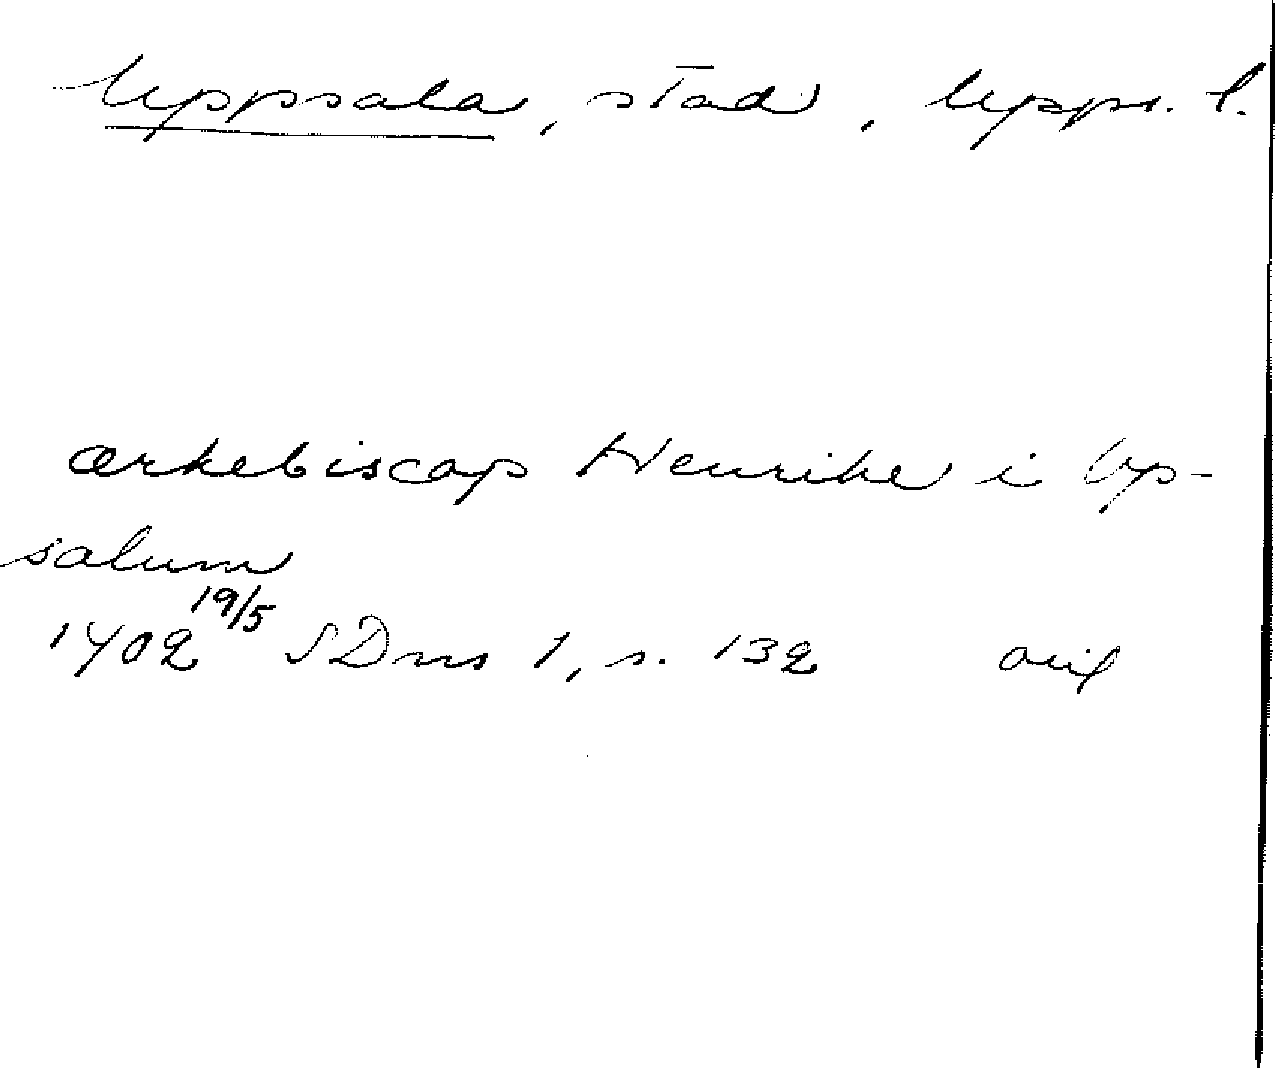 Uppsala, stad, Upps. l.
ærkebiscop Henrike i Up-
salum
1402 19/5 SDns 1, s. 132 avil